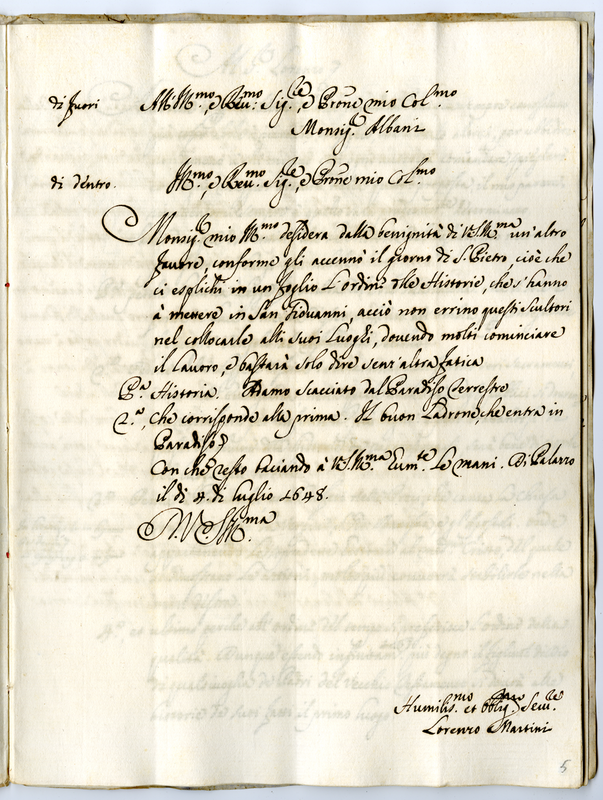 di fuori All' Ill.mo, e Reu.mo Sig.re, e Prone mio Col.mo
Monsig.r Albani
di dentro. Ill.mo, e Reu.mo Sig.re, e Prone mio Col.mo
Monsig.r mio Ill.mo desidera dalla benignità di V.S. Ill.ma un'altro
fauore, conforme gli accennò il giorno di S. Pietro, cioè che
ci esplichi in un foglio l'ordine delle Historie, che s'hanno
à mettere in San Giouanni, acciò non errino questi scultori
nel collocarle alli suoi luoghi, douendo molti cominciare
il lauoro, e bastarà solo dire senz'altra fatica
P.a Historia. Adamo scacciato dal Paradiso terrestre
2.a che corrisponde alla prima. Il buon Ladrone, che entra in
Paradiso
Con che resto baciando à V.S. Ill.ma Eum.te le mani. Di Palazzo
il dì 4. di luglio 1648.
D. V. S. Ill.ma
Humilis.mo et Obblig.mo Seru.re
Lorenzo Martini
5